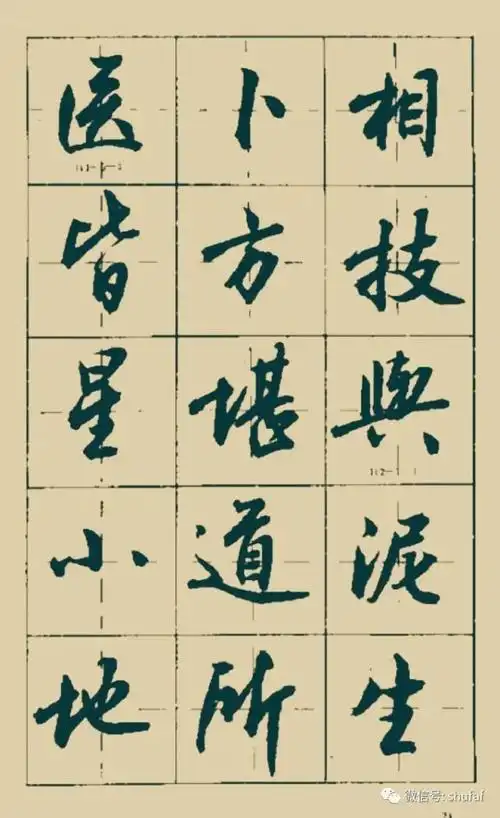 医卜相
皆方技
星堪輿
小道泥
地所生
微信号: shufaf